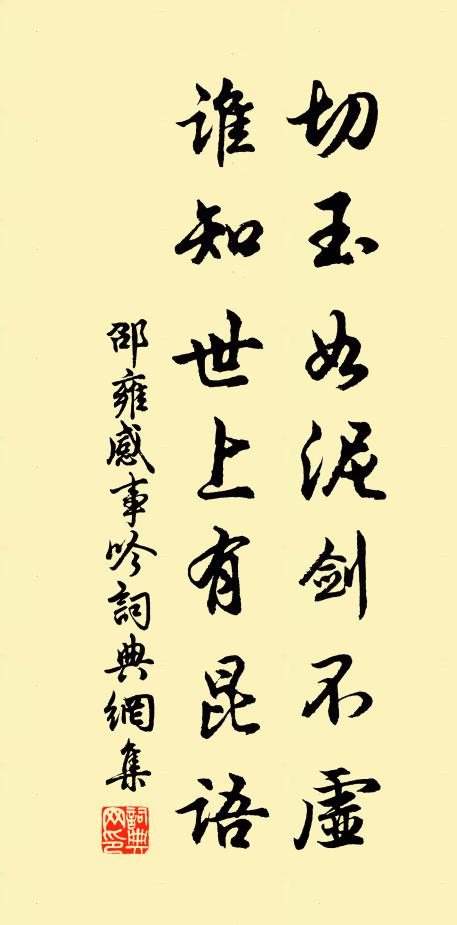 切玉如泥剑不虚
谁知世上有昆语
邵雍感事吟詞典網集
詞典网印